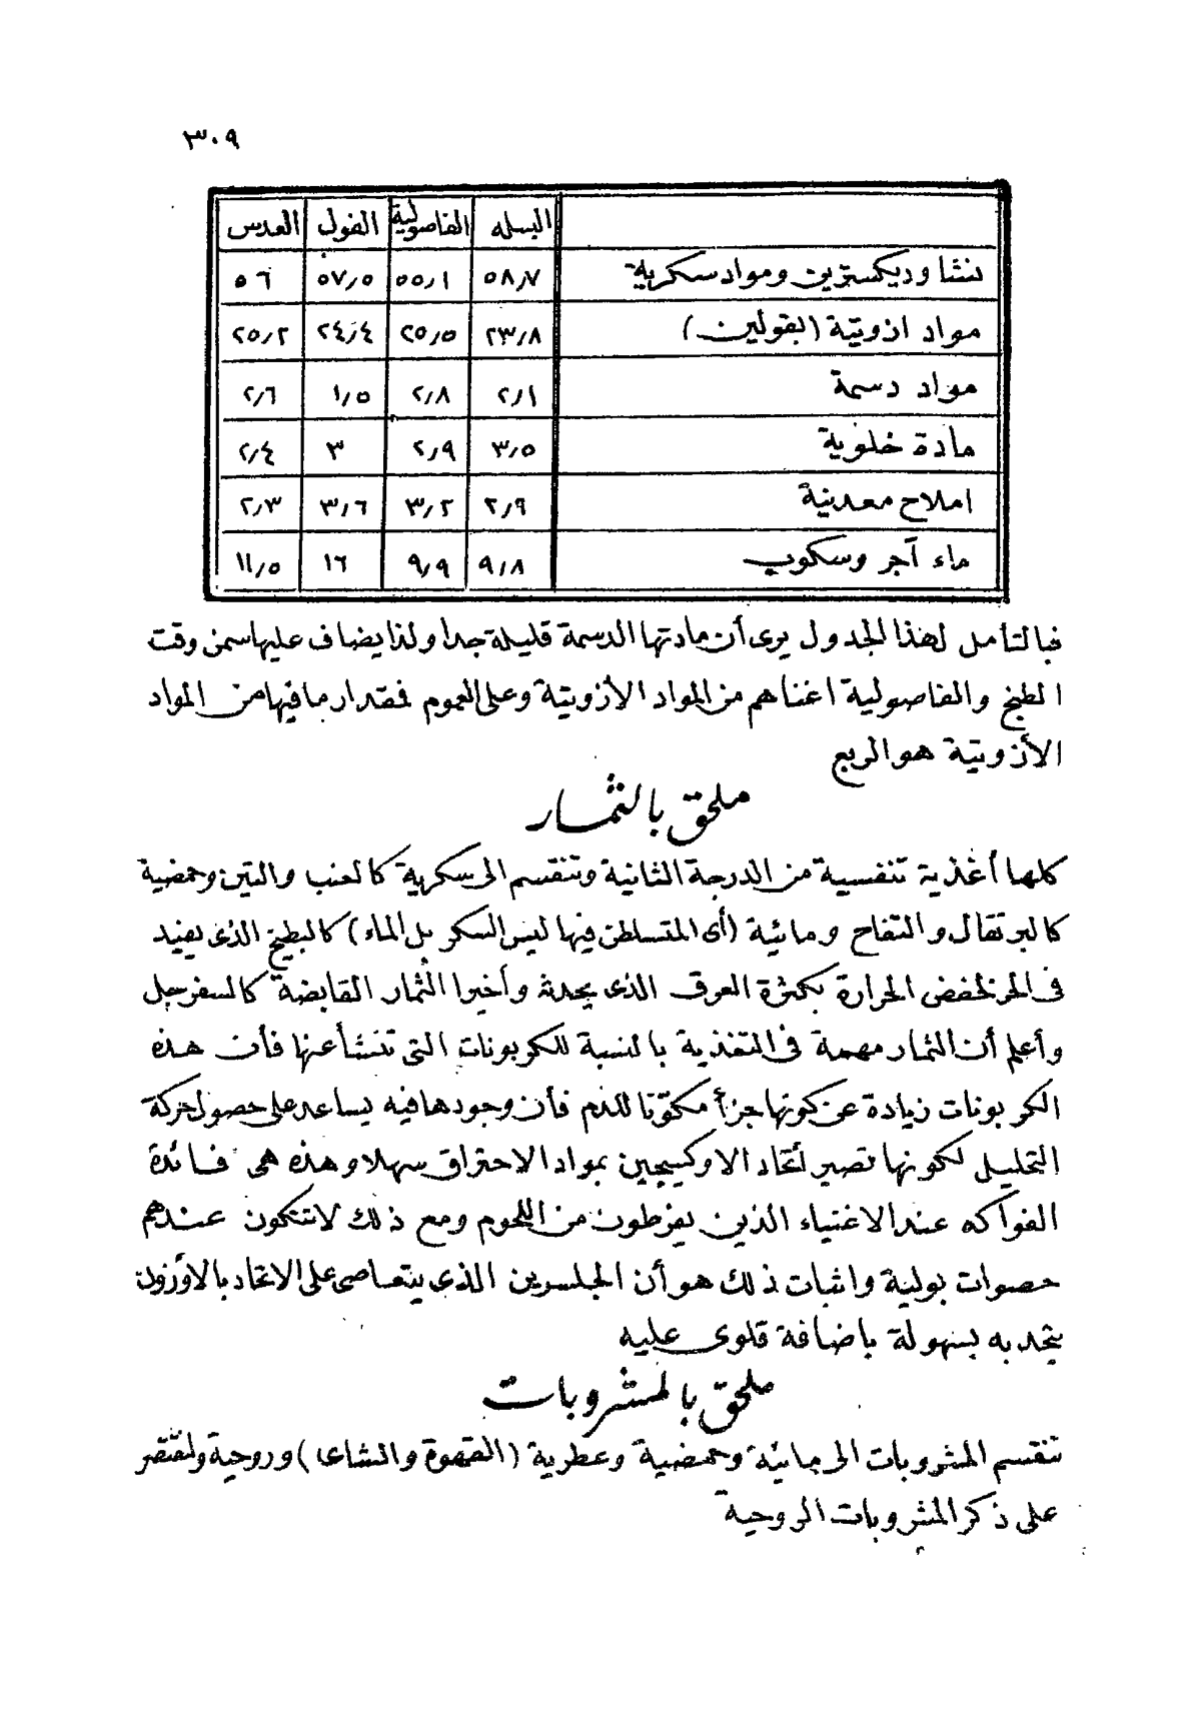 ٣٠٩
البسله الفاصولية الفول العدس
نشا وديكسترين ومواد سكرية ٥٨٫٧ ٥٥٫١ ٥٧٫٥ ٥٦
مواد ازوتية (بقولين) ٢٣٫٨ ٢٥٫٥ ٢٤٫٤ ٢٥٫٢
مواد دسمة ٢٫١ ٢٫٨ ١٫٥ ٢٫٦
مادة خلوية ٣٫٥ ٢٫٩ ٣ ٢٫٤
املاح معدنية ٢٫٩ ٣٫٢ ٣٫٦ ٢٫٣
ماء آجر وسكوب ٩٫٨ ٩٫٩ ١٦ ١١٫٥
فبالتأمل لهذا الجدول يرى أن مادتها الدسمة قليلة جدا ولذا يضاف عليها سمن وقت
الطبخ والفاصولية اغناهم من المواد الأزوتية وعلى العموم فمقدار ما فيها من المواد
الأزوتية هو الربع
ملحق بالثمار
كلها أغذية تنفسية من الدرجة الثانية وتنقسم الى سكرية كالعنب والتين وحمضية
كالبرتقال والتفاح ومائية (أى المتسلطن فيها ليس السكر بل الماء) كالبطيخ الذى يفيد
فى الحر لخفض الحرارة بكثرة العرق الذى يحدثه وأخيرا الثمار القابضة كالسفرجل
وأعلم أن الثمار مهمة فى التغذية بالنسبة للكربونات التى تنشأ عنها فأن هذه
الكربونات زيادة عن كونها جزأ مكوّنا للدم فأن وجودها فيه يساعد على حصول حركة
التحليل لكونها تصير أتحاد الاوكسيجين بمواد الاحتراق سهلا وهذه هى فائدة
الفواكه عند الاغنياء الذين يفرطون من اللحوم ومع ذلك لا تتكون عندهم
حصوات بولية واثبات ذلك هو أن الجلسرين الذى يتعاصى على الاتحاد بالأوزون
يتحد به بسهولة باضافة قلوى عليه
ملحق بالمشروبات
تنقسم المشروبات الى مائية وحمضية وعطرية (القهوة والشاى) وروحية ولنقتصر
على ذكر المشروبات الروحية